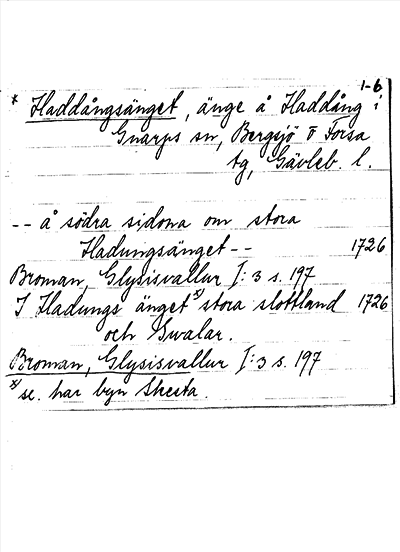 1-6
* Haddångsänget, änge å Haddång i
Gnarps sn, Bergsjö o Forsa
tg, Gävleb. l.
-- å södra sidona om stora
Hadungsänget -- 1726
Broman, Glysisvallur I:3 s. 197
I Hadungs änget x) stora slottland 1726
och Swalar.
Broman, Glysisvallur I:3 s. 197
x) se. har byn